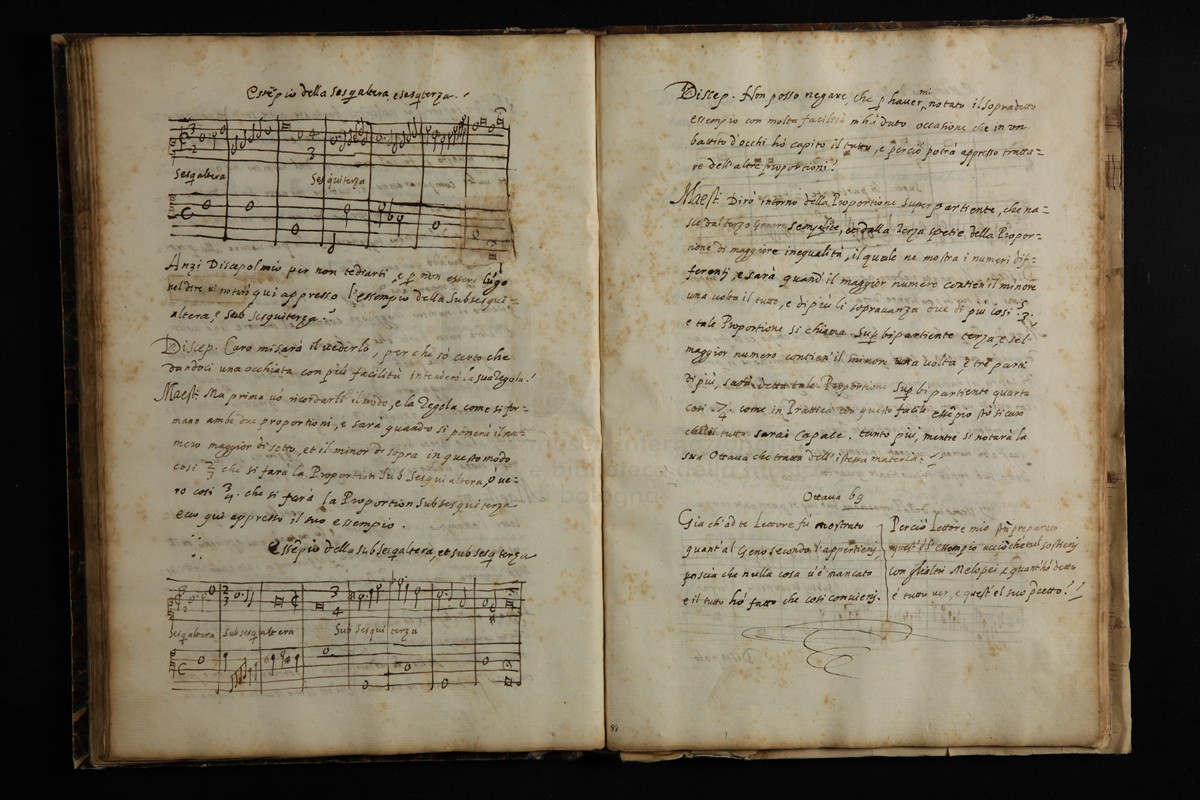 Essẽpio della Sesq̃altera, e sesq̃terza.
3 2
4 3
Sesq̃altera Sesquiterza
Anzi Discepol mio per non tediarti, e p̱ non esser lũgo
nel dire vi notarò qui appresso l'essempio della Subsesqui=
altera, e Sub Sesquiterza.
Discep. Caro mi sarà il vederlo, per che só certo che
dandoci una occhiata con più facilità intenderó la sua Regola.
Maest. Ma prima vó ricordarti il modo, e la Regola come si for=
mano ambe due proportioni, e sarà quando si ponerà il nu=
mero maggior di sotto, et il minor di sopra in questo modo
cosi 2/3 che si farà la Proportion Sub Sesquialtera, ó ue=
ro cosi 3/4 che si farà la Proportion Subsesquiterza
ecco qui appresso il suo essempio.
Essẽpio della subsesq̃altera, et subsesq̃terza
2 3
3 4
Sesq̃altera Subsesq̃altera Sub Sesquiterza
Discep. Non posso negare, che p̱ haver mi notato il sopradetto
essempio con molta facilità m'hà dato occasione che in un
battito d'occhi hò capito il tutto, e perciò potrà appresso tratta=
re dell'altre proportioni.
Maest. Dirò intorno della Proportione Superpartiente, che na=
sce dal terzo Genere semplice, et dalla Terza spetie della Propor=
tione di maggiore inequalità, il quale ne mostra i numeri dif=
ferenti, e sarà quand' il maggior numero contien' il minore
una volta il tutto, e di più li sopravanza due di più cosi 5/3
e tale Proportione si chiama Sup̱bipartiente terza, e se l
maggior numero contien' il minor una volta e trè parti
di più, sarà detta tale Proportione Sup̱ bipartiente quarta
cosi 7/4. come in Prattica con questo facile essẽpio stò sicuro
che del tutto sarai Capace. tanto più, mentre si notarà la
sua Ottava che tratta dell'istessa materia.
Ottava 69
Gia ch'ad te Lettore fù mostrato
quant'al Geno secondo l'appertienj
poscia che nulla cosa v'è mancato
e il tutto hó fatto che cosi convienj.
Perciò Lettore mio stà preparato
quest'è l'essempio acciò che tu'l sostienj
con gl'altri Melopei, e quant'hò detto
è tutto ver, e quest'el suo p̱cetto!
museo inter
e biblioteca della m
bologna